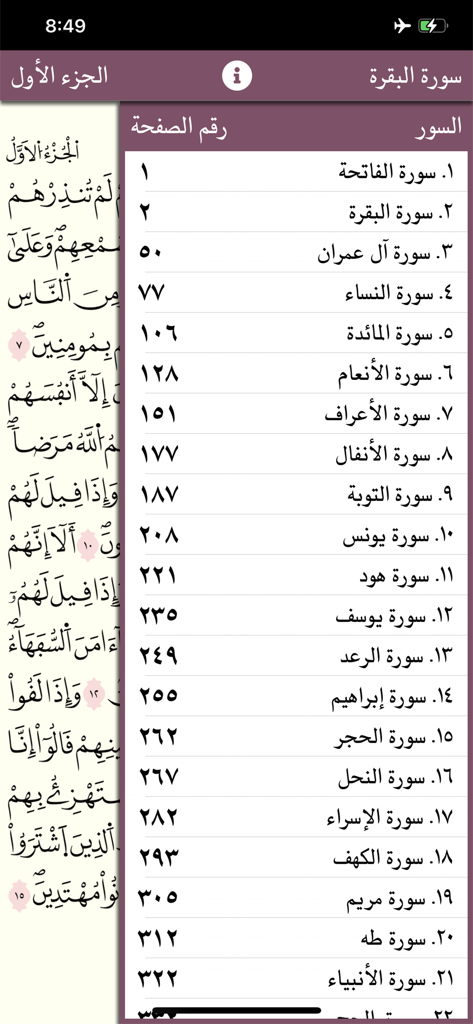 8:49
سورة البقرة
الجزء الأول
السور
رقم الصفحة
١. سورة الفاتحة ١
٢. سورة البقرة ٢
٣. سورة آل عمران ٥٠
٤. سورة النساء ٧٧
٥. سورة المائدة ١٠٦
٦. سورة الأنعام ١٢٨
٧. سورة الأعراف ١٥١
٨. سورة الأنفال ١٧٧
٩. سورة التوبة ١٨٧
١٠. سورة يونس ٢٠٨
١١. سورة هود ٢٢١
١٢. سورة يوسف ٢٣٥
١٣. سورة الرعد ٢٤٩
١٤. سورة إبراهيم ٢٥٥
١٥. سورة الحجر ٢٦٢
١٦. سورة النحل ٢٦٧
١٧. سورة الإسراء ٢٨٢
١٨. سورة الكهف ٢٩٣
١٩. سورة مريم ٣٠٥
٢٠. سورة طه ٣١٢
٢١. سورة الأنبياء ٣٢٢
اَلْجُزْءُ اَلَاوَّلُ
لَمْ تُنذِرْهُمْ
وَعَلَىٰٓ
مِنَ اَلنَّاسِ
بِمُومِنِينَۖ ٧
إِلَّآ أَنفُسَهُمْ
اُللَّهُ مَرَضاٗۖ
وَإِذَا قِيلَ لَهُمْ
١٠ أَلَآ إِنَّهُمْ
إِذَا قِيلَ لَهُمُۥٓ
ءَامَنَ اَلسُّفَهَآءُۖ
١٢ وَإِذَا لَقُواْ
قَالُوٓاْ إِنَّا
بِهِمْ
اَلذِينَ اَشْتَرَوُاْ
مُهْتَدِينَۖ ١٥